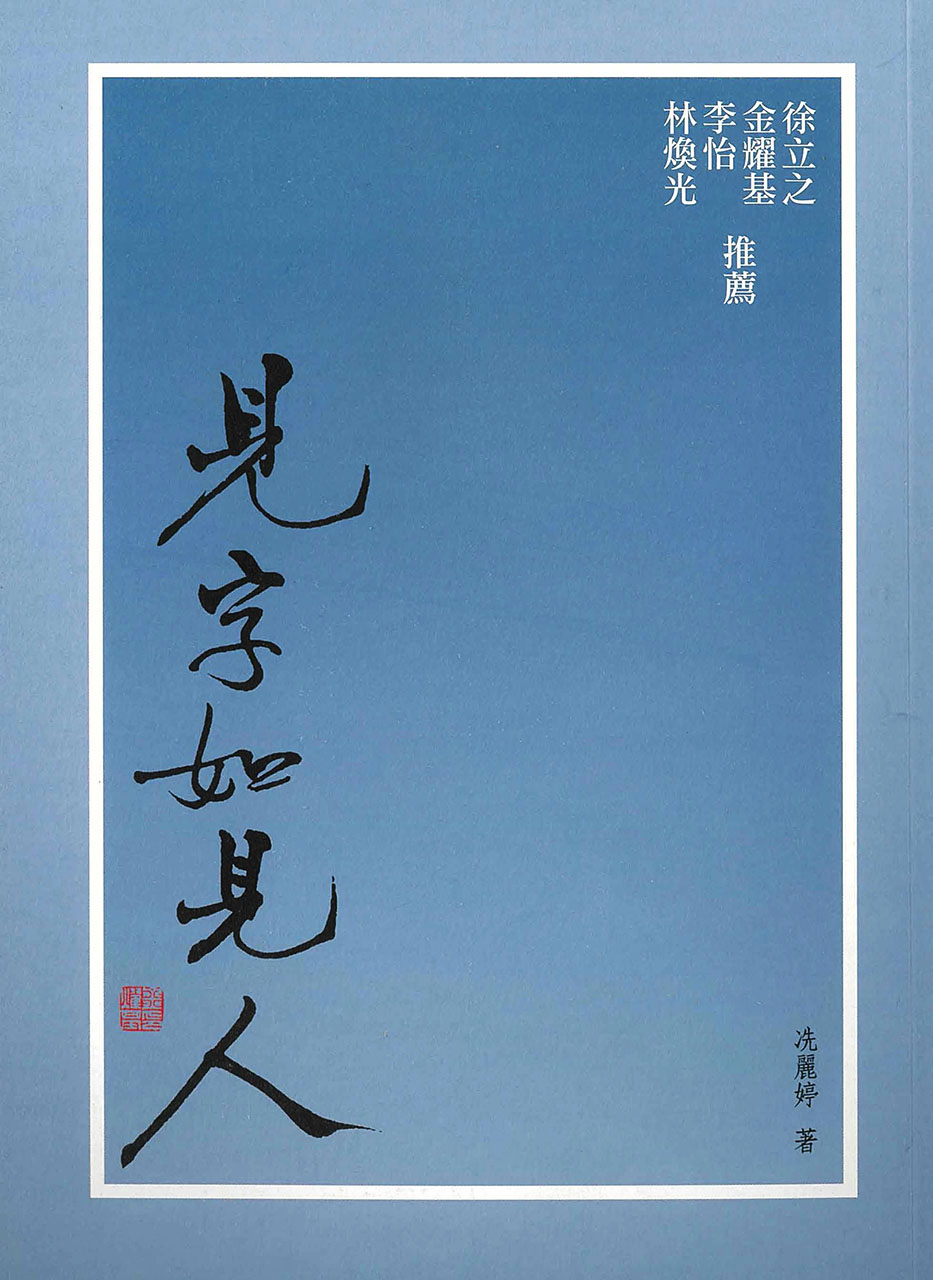 徐立之
金耀基
李怡
林煥光
推薦
見字如見人
冼麗婷 著